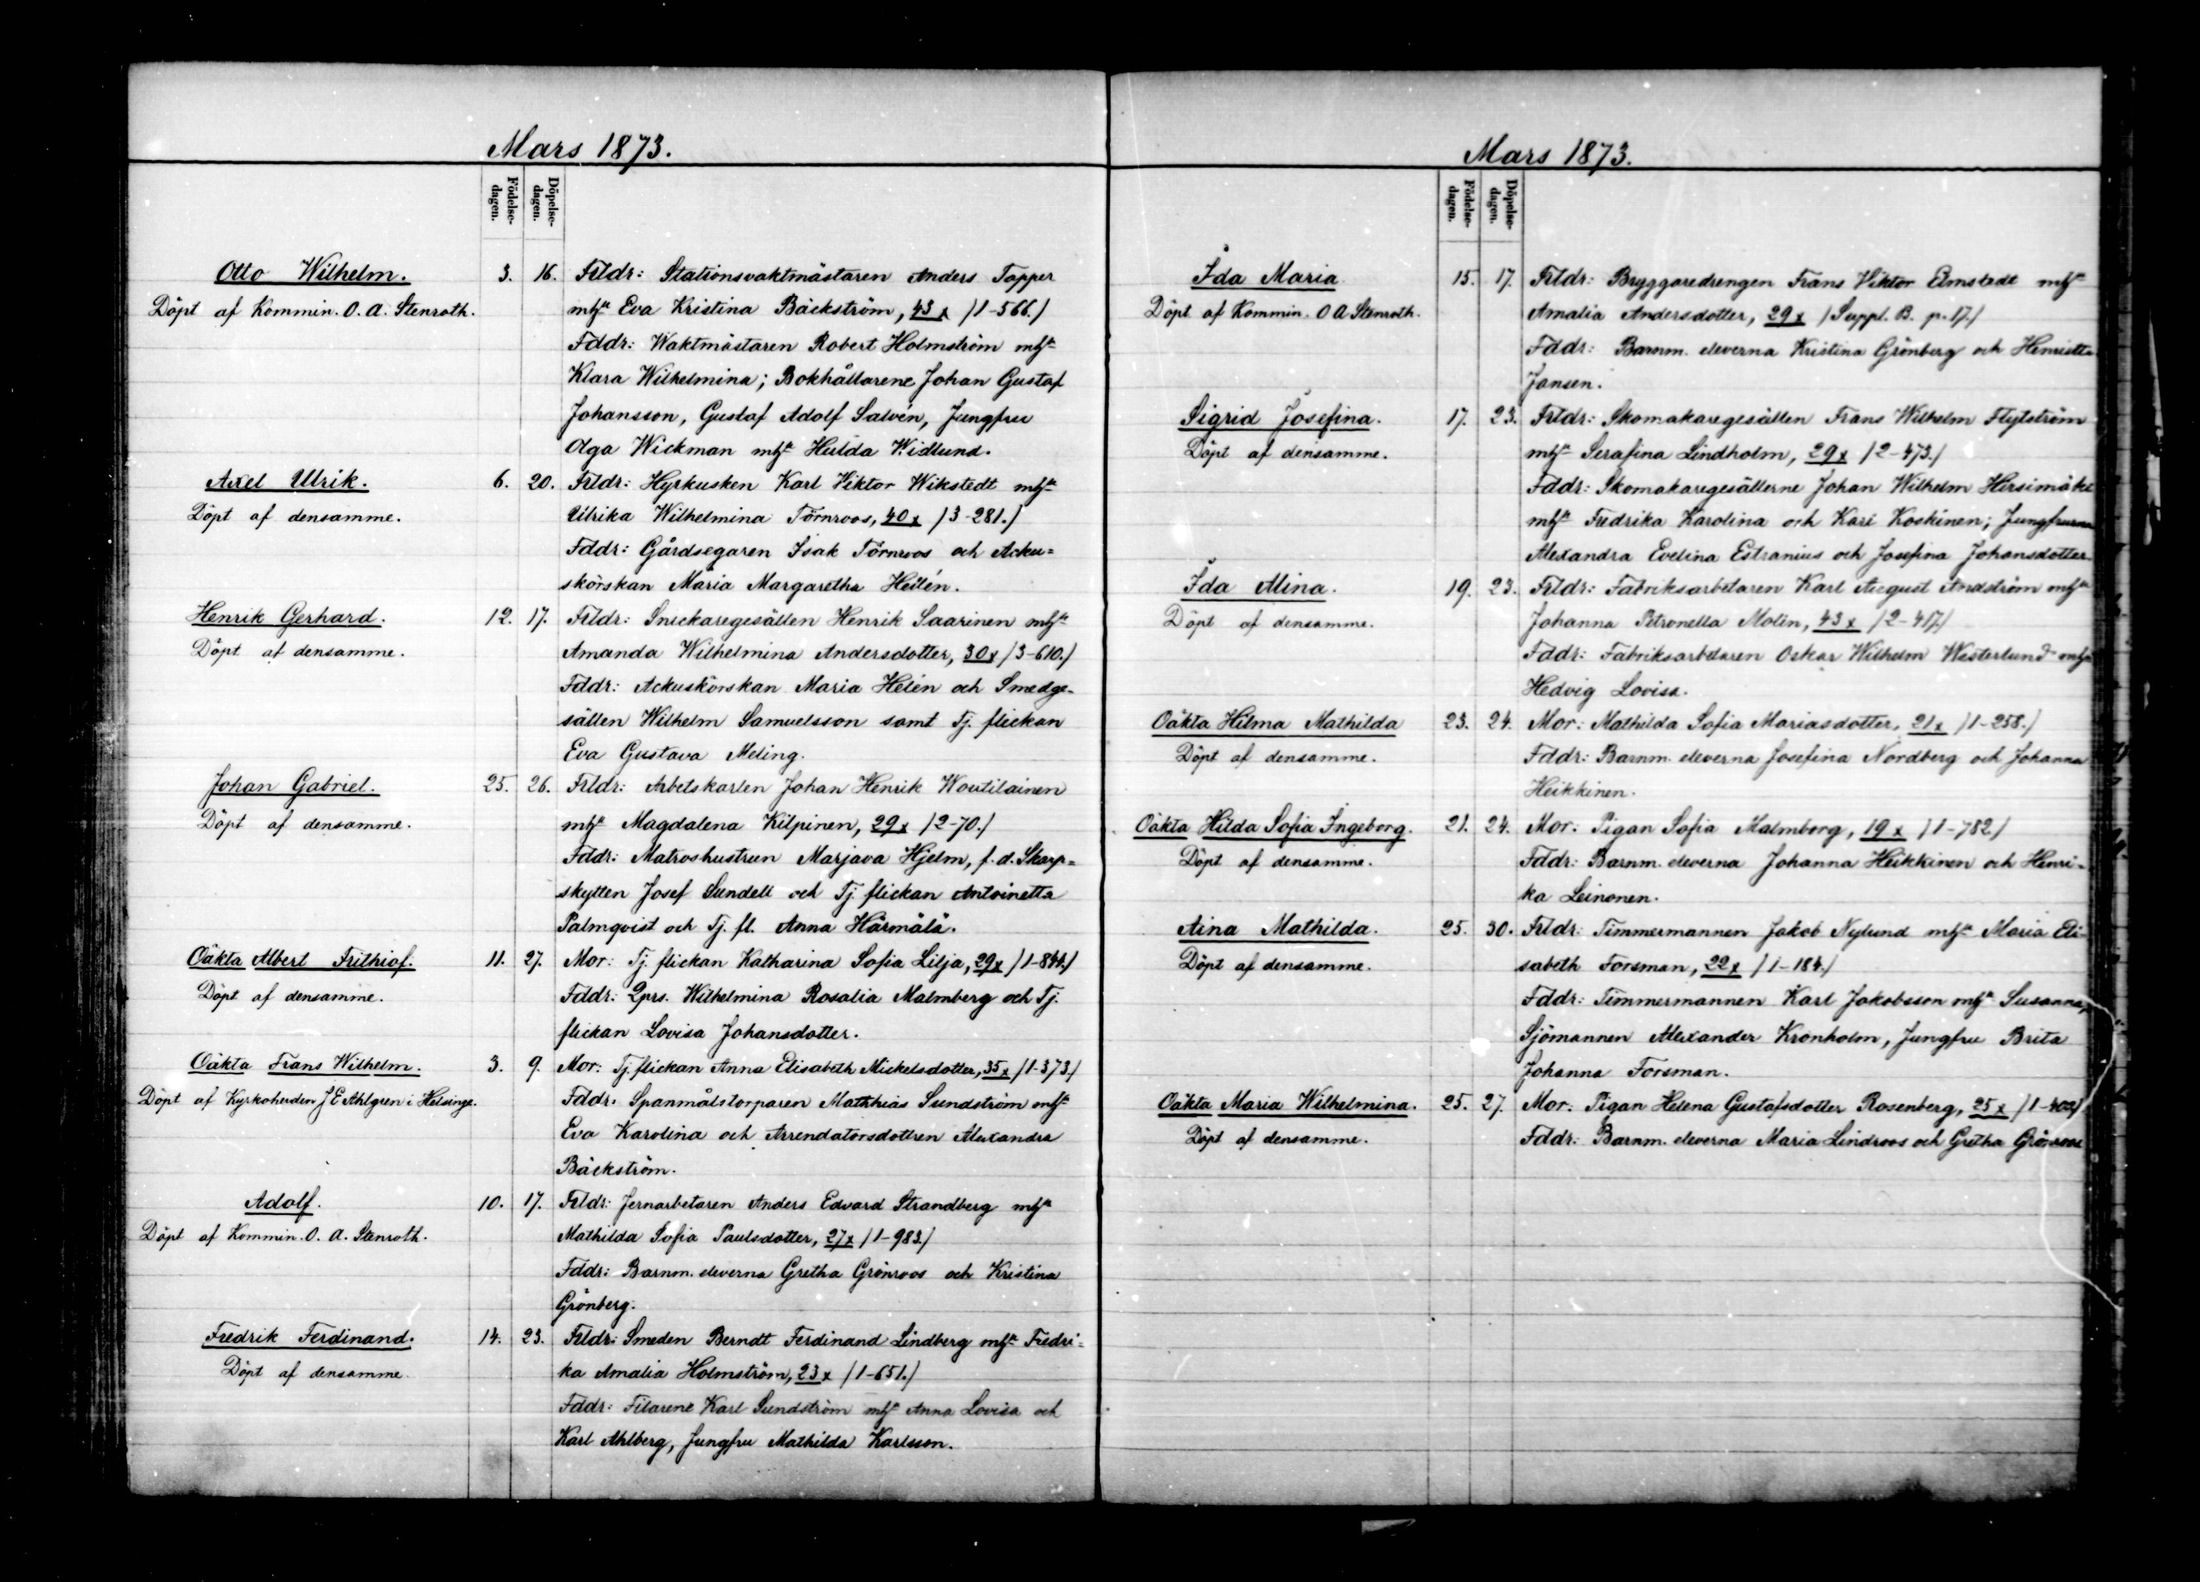 Mars 1873.
Födelse-dagen.
Döpelse-dagen.
Otto Wilhelm. 3. 16. Frldr: Stationsvaktmästaren Anders Topper
Döpt af Kommin. O. A. Stenroth. mhst Eva Kristina Bäckström, 43 x /1-566./
Fddr: Waktmästaren Robert Holmström mhst
Klara Wilhelmina; Bokhållarene Johan Gustaf
Johansson, Gustaf Adolf Salvén, Jungfru
Olga Wickman mhst Hulda Widlund.
Axel Ulrik. 6. 20. Frldr: Hyrkusken Karl Viktor Wikstedt mhst
Döpt af densamme. Ulrika Wilhelmina Törnroos, 40 x /3-281./
Fddr: Gårdsegaren Isak Törnroos och Acku=
skörskan Maria Margaretha Heilén.
Henrik Gerhard. 12. 17. Frldr: Snickaregesällen Henrik Saarinen mhst
Döpt af densamme. Amanda Wilhelmina Andersdotter, 30 x /3-610./
Fddr: Ackuskörskan Maria Helén och Smedge-
sällen Wilhelm Samuelsson samt Tj. flickan
Eva Gustava Meling.
Johan Gabriel. 25. 26. Frldr: Arbetskarlen Johan Henrik Woutilainen
Döpt af densamme. mhst Magdalena Kilpinen, 29 x /2-70./
Fddr: Matroshustrun Marjava Hjelm, f. d. Skarp=
skytten Josef Sundell och Tj. flickan Antoinetta
Palmqvist och Tj. fl. Anna Härmälä.
Oäkta Albert Frithiof. 11. 27. Mor: Tj. flickan Katharina Sofia Lilja, 29 x /1-841./
Döpt af densamme. Fddr: Qprs. Wilhelmina Rosalia Malmberg och Tj.
flickan Lovisa Johansdotter.
Oäkta Frans Wilhelm. 3. 9. Mor: Tj. flickan Anna Elisabeth Mickelsdotter, 35 x /1-373./
Döpt af Kyrkoherden J E Ahlgren i Helsinge. Fddr: Spanmålstorparen Matthias Sundström mhst
Eva Karolina och Arrendatorsdottren Alexandra
Bäckström.
Adolf. 10. 17. Frldr: Jernarbetaren Anders Edvard Strandberg mhst
Döpt af Kommin. O. A. Stenroth. Mathilda Sofia Paulsdotter, 27 x /1-983./
Fddr: Barnm. eleverna Gretha Grönroos och Kristina
Grönberg.
Fredrik Ferdinand. 14. 23. Frldr: Smeden Berndt Ferdinand Lindberg mhst Fredri-
Döpt af densamme. ka Amalia Holmström, 23 x /1-651./
Fddr: Filarene Karl Sundström mhst Anna Lovisa och
Karl Ahlberg, Jungfru Mathilda Karlsson.
Mars 1873.
Födelse-dagen.
Döpelse-dagen.
Ida Maria 15. 17. Frldr: Bryggaredrengen Frans Viktor Elmstedt mhst
Döpt af Kommin. O A Stenroth. Amalia Andersdotter, 29 x /Suppl. B. p. 17./
Fddr: Barnm. eleverna Kristina Grönberg och Henrietta
Jansen.
Sigrid Josefina. 17. 23. Frldr: Skomakaregesällen Frans Wilhelm Flytström
Döpt af densamme. mhst Serafina Lindholm, 29 x /2-473./
Fddr: Skomakaregesällerne Johan Wilhelm Hirsimäki
mhst Fredrika Karolina och Karl Koskinen; Jungfrurna
Alexandra Evelina Estranius och Josefina Johansdotter
Ida Alina. 19. 23. Frldr: Fabriksarbetaren Karl August Andström mhst
Döpt af densamme. Johanna Petronella Molin, 43 x /2-417/
Fddr: Fabriksarbetaren Oskar Wilhelm Westerlund mhst
Hedvig Lovisa.
Oäkta Hilma Mathilda 23. 24. Mor: Mathilda Sofia Mariasdotter, 21 x /1-258./
Döpt af densamme. Fddr: Barnm. eleverna Josefina Nordberg och Johanna
Heikkinen.
Oäkta Hilda Sofia Ingeborg. 21. 24. Mor: Pigan Sofia Malmborg, 19 x /1-782/
Döpt af densamme. Fddr: Barnm. eleverna Johanna Heikkinen och Henri-
ka Leinonen.
Aina Mathilda. 25. 30. Frldr: Timmermannen Jakob Nylund mhst Maria Eli-
Döpt af densamme. sabeth Forsman, 22 x /1-184./
Fddr: Timmermannen Karl Jakobsson mhst Susanna,
Sjömannen Alexander Kronholm, Jungfru Brita
Johanna Forsman.
Oäkta Maria Wilhelmina. 25. 27. Mor: Pigan Helena Gustafsdotter Rosenberg, 25 x /1-402/
Döpt af densamme. Fddr: Barnm. eleverna Maria Lindroos och Gretha Grönroos